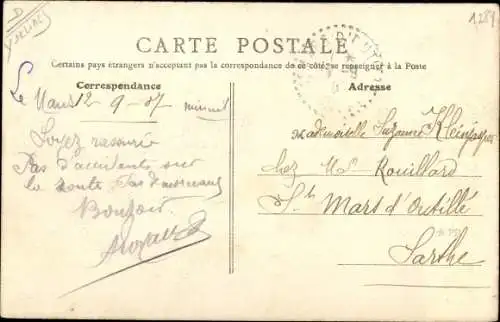 CARTE POSTALE
Certains pays étrangers n'acceptant pas la correspondance de ce côté, se renseigner à la Poste
Correspondance
Le Mans 12-9-07 minuit
Soyez rassurée
Pas d'accidents sur
la route. Pas
Bonsoir
Adresse
Mademoiselle Suzanne
chez Mr Rouillard
St Mars d'Outillé
Sarthe
1289